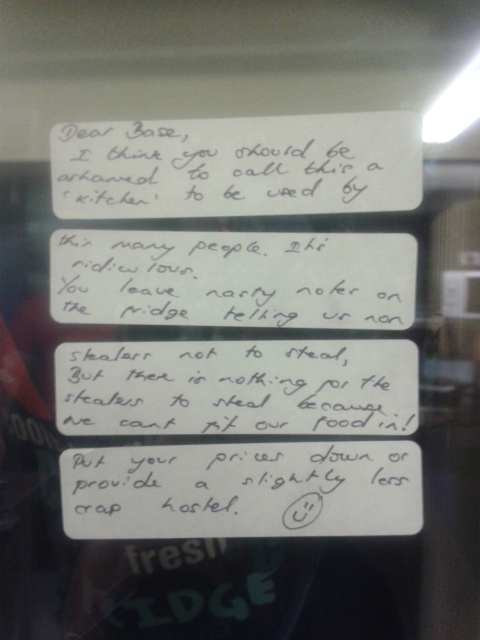 Dear Base,
I think you should be
ashamed to call this a
'kitchen' to be used by
this many people. Its
ridiculous.
You leave nasty notes on
the fridge telling us non
stealers not to steal,
But there is nothing for the
stealers to steal because
we cant fit our food in!
Put your prices down or
provide a slightly less
crap hostel.
fresh